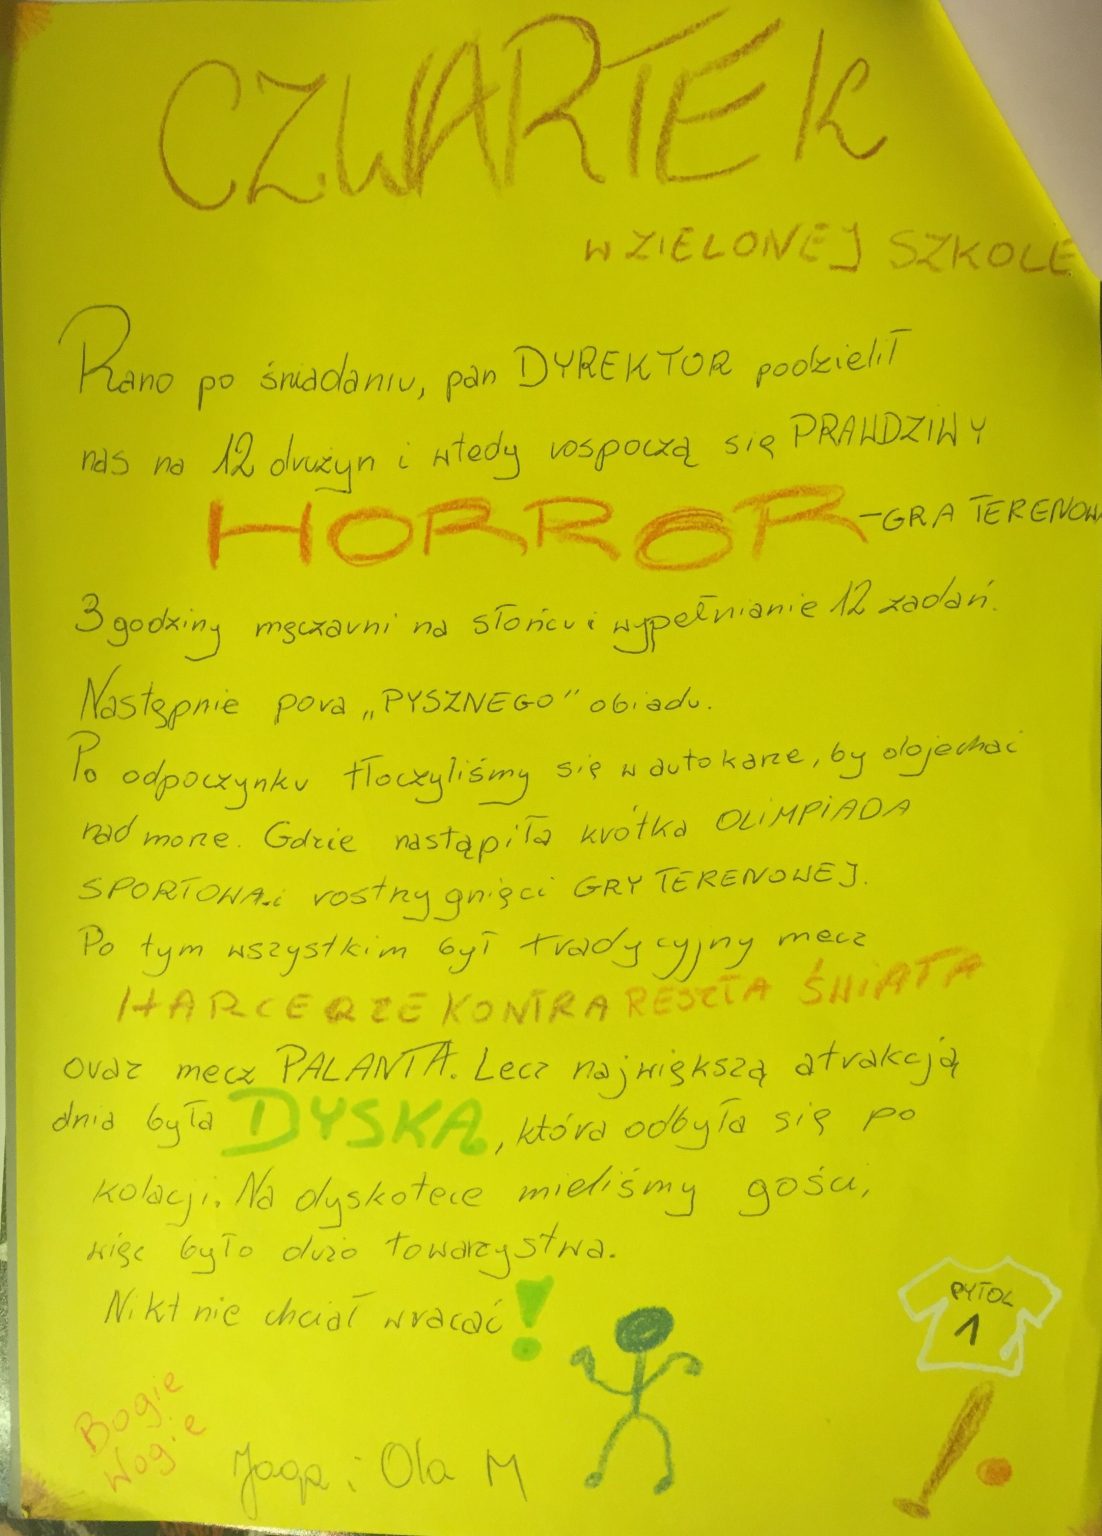 CZWARTEK
W ZIELONEJ SZKOLE
Rano po śniadaniu, pan DYREKTOR podzielił
nas na 12 drużyn i wtedy rospoczą się PRAWDZIWY
HORROR - GRA TERENOW
3 godziny męczarni na słońcu i wypełnianie 12 zadań.
Następnie pora „PYSZNEGO" obiadu.
Po odpoczynku tłoczyliśmy się w autokarze, by dojechać
nad morze. Gdzie nastąpiła krótka OLIMPIADA
SPORTOWA i rostrzygnięci GRY TERENOWEJ.
Po tym wszystkim był tradycyjny mecz
HARCERZE KONTRA RESZTA ŚWIATA
oraz mecz PALANTA. Lecz największą atrakcją
dnia była DYSKA, która odbyła się po
kolacji. Na dyskotece mieliśmy gości,
więc było dużo towarzystwa.
Nikt nie chciał wracać!
PYTOL
1
Bogie
Wogie
Jaga i Ola M